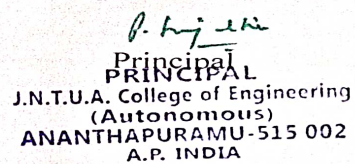 Principal
PRINCIPAL
J.N.T.U.A. College of Engineering
(Autonomous)
ANANTHAPURAMU-515 002
A.P. INDIA